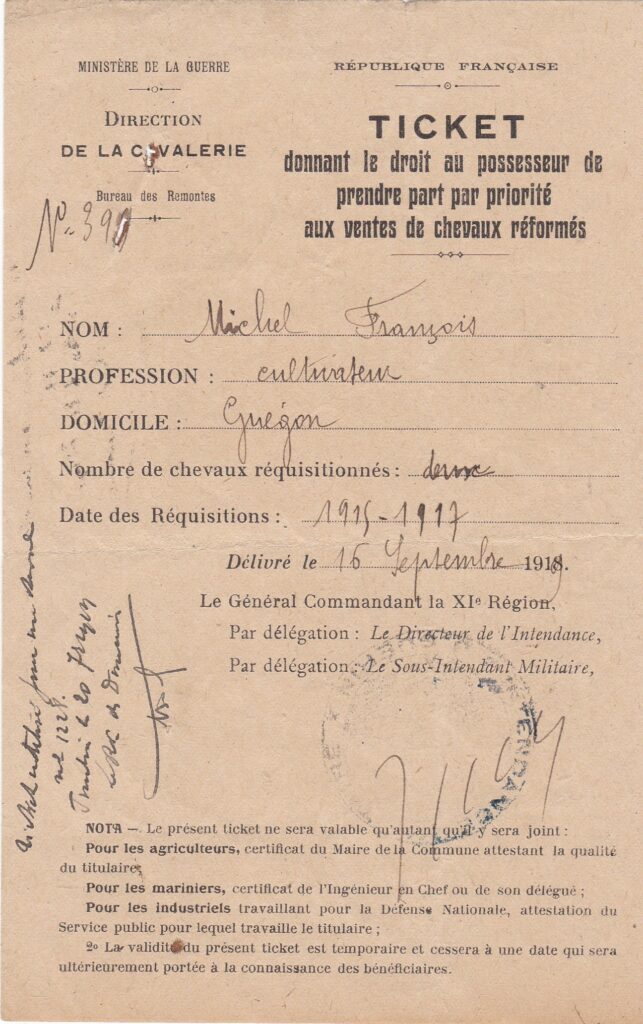 MINISTÈRE DE LA GUERRE
DIRECTION
DE LA CAVALERIE
Bureau des Remontes
N° 390
RÉPUBLIQUE FRANÇAISE
TICKET
donnant le droit au possesseur de
prendre part par priorité
aux ventes de chevaux réformés
NOM : Michel François
PROFESSION : cultivateur
DOMICILE : Guégon
Nombre de chevaux réquisitionnés : deux
Date des Réquisitions : 1915-1917
Délivré le 16 Septembre 1918.
Le Général Commandant la XIe Région,
Par délégation : Le Directeur de l'Intendance,
Par délégation : Le Sous-Intendant Militaire,
NOTA — Le présent ticket ne sera valable qu'autant qu'il y sera joint :
Pour les agriculteurs, certificat du Maire de la Commune attestant la qualité
du titulaire;
Pour les mariniers, certificat de l'Ingénieur en Chef ou de son délégué ;
Pour les industriels travaillant pour la Défense Nationale, attestation du
Service public pour lequel travaille le titulaire ;
2o La validité du présent ticket est temporaire et cessera à une date qui sera
ultérieurement portée à la connaissance des bénéficiaires.